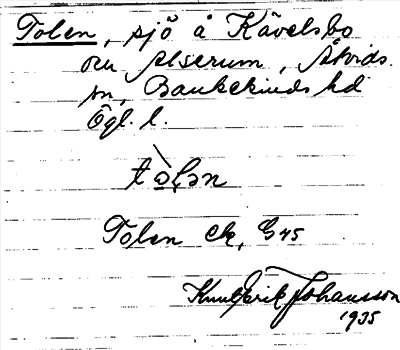 Tolen, sjö å Kävelsbo
ou Alserum, Åtvids.
sn, Bankekinds hd
Ögl. l.
tòlən
Tolen Ek, G 45
Knut Erik Johansson
1935